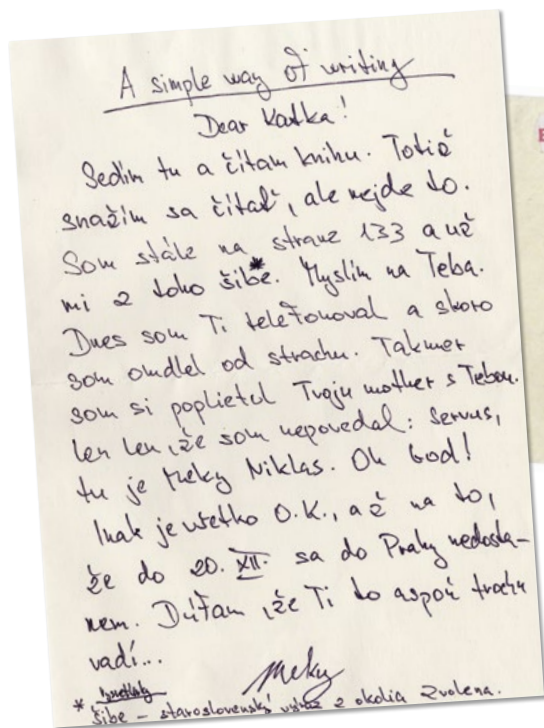 A simple way of writing
Dear Katka!
Sedím tu a čítam knihu. Totiž
snažím sa čítať, ale nejde to.
Som stále na strane 133 a už
mi z toho šibe*. Myslím na Teba.
Dnes som Ti telefonoval a skoro
som omdlel od strachu. Takmer
som si poplietol Tvoju mother s Tebou.
len len, že som nepovedal: Servus,
tu je Meky Niklas. Oh God!
Inak je všetko O.K., až na to,
že do 20. XII. sa do Prahy nedosta-
nem. Dúfam, že Ti to aspoň trochu
vadí...
Meky
* šibe - staroslovenský výraz z okolia Zvolena.